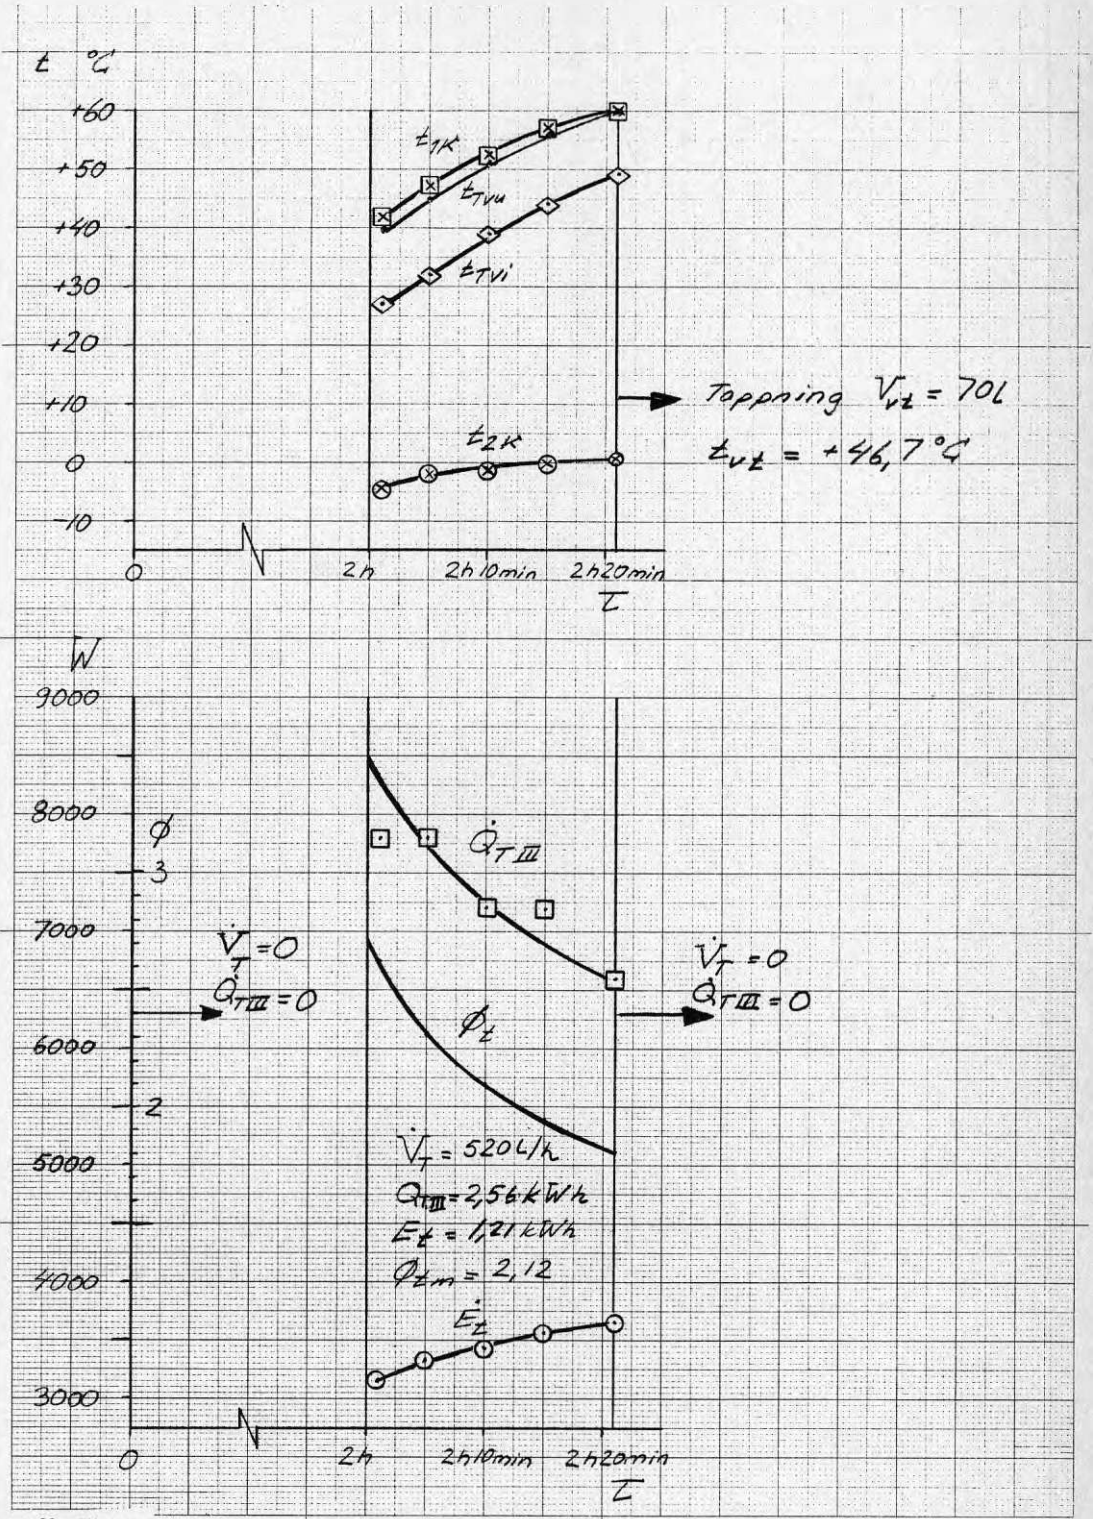 t °C
+60
+50
+40
+30
+20
+10
0
-10
t1K
tTvu
tTvi
t2K
Tappning Vvt = 70l
tvt = +46,7 °C
0 2h 2h10min 2h20min
τ
W
9000
8000
7000
6000
5000
4000
3000
φ
3
2
Q̇TIII
V̇T = 0
Q̇TIII = 0
V̇T = 0
Q̇TIII = 0
φt
V̇T = 520 l/h
QTIII = 2,56 kWh
Et = 1,21 kWh
φtm = 2,12
Ėt
0 2h 2h10min 2h20min
τ